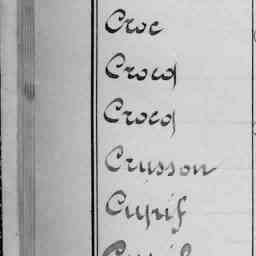 Croc
Crocq
Crocq
Crusson
Cuyrif